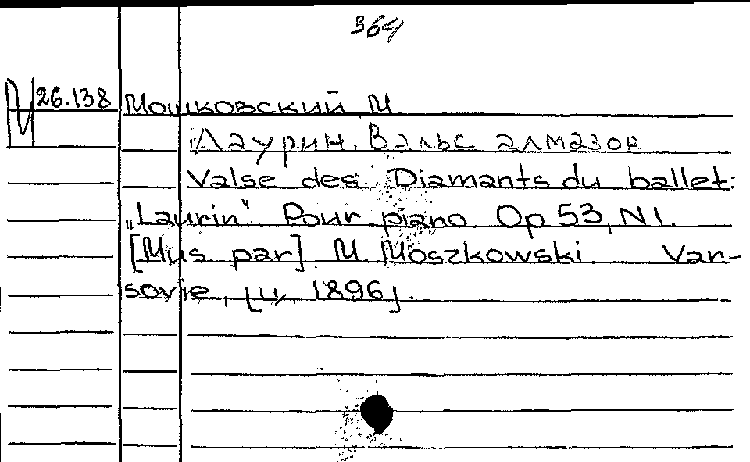 364
И 26.138 Мошковский, М.
Лаурин. Вальс алмазов
Valse des Diamants du ballet:
„Laurin" Pour piano. Op 53, N1.
[Mus par] M. Moszkowski. Var-
sovie, [ц. 1896].